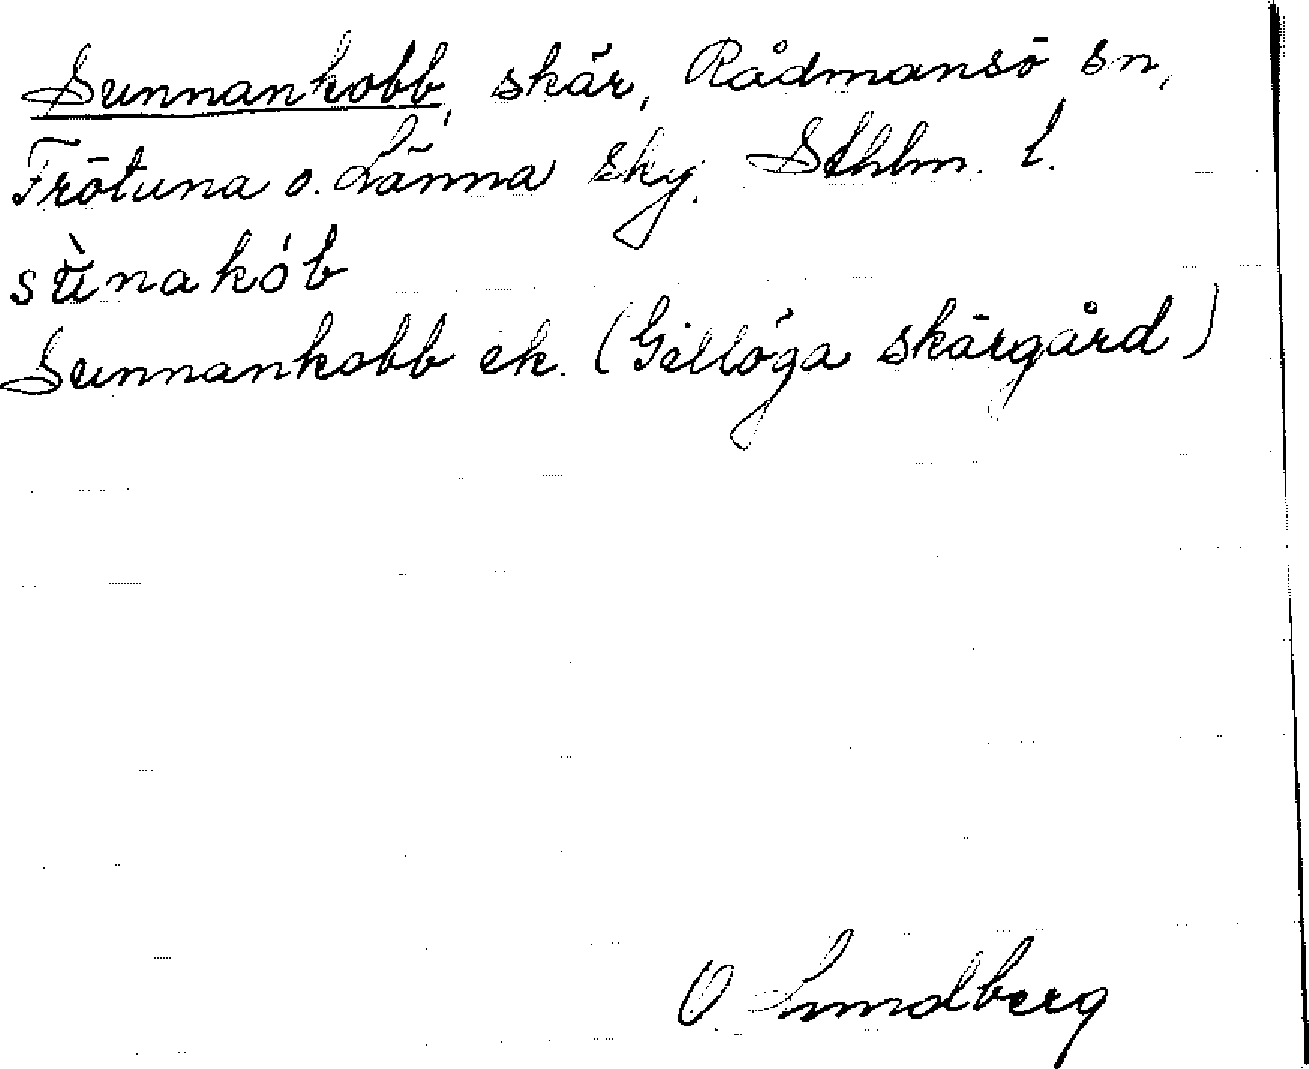 Sunnankobb, skär, Rådmansö sn,
Frötuna o. Länna skg. Sthlm. l.
sùnakób
Sunnankobb ek. (Gillöga skärgård)
O Lundberg